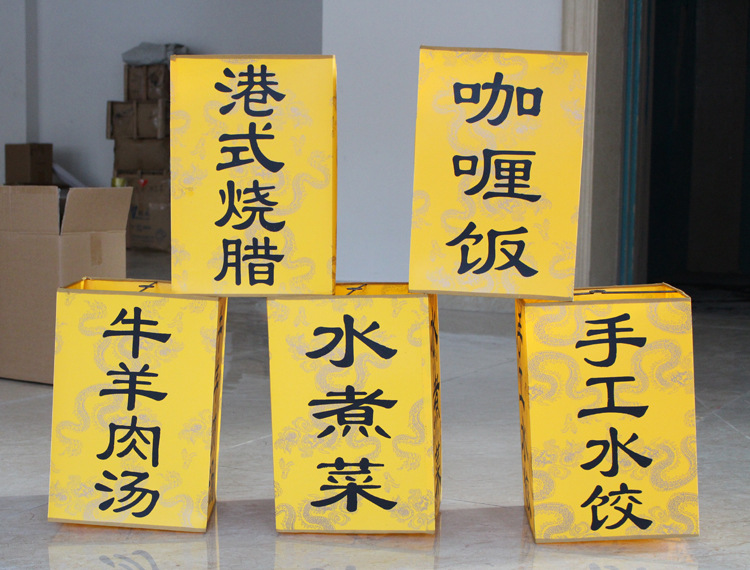 港式烧腊
咖喱饭
牛羊肉汤
水煮菜
手工水饺